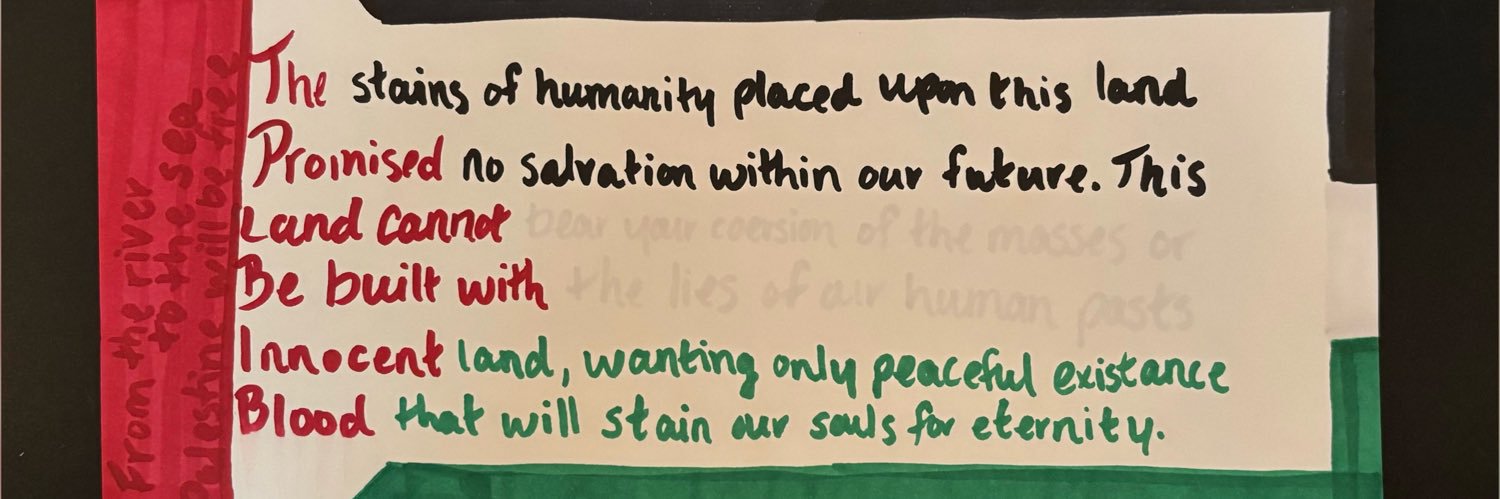 From the river
to the sea
Palestine will be free
The stains of humanity placed upon this land
Promised no salvation within our future. This
Land cannot bear your coersion of the masses or
Be built with the lies of our human pasts
Innocent land, wanting only peaceful existance
Blood that will stain our souls for eternity.